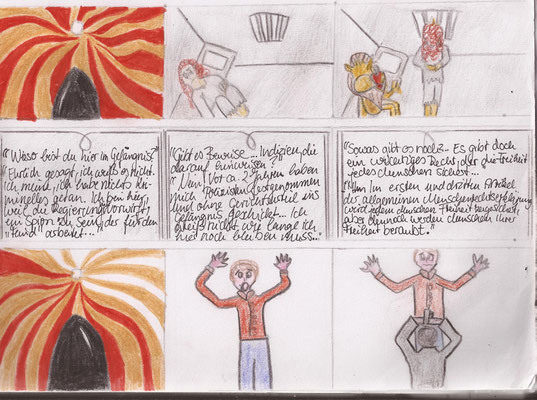 "Wieso bist du hier im Gefängnis?"
"Ehrlich gesagt, ich weiß es nicht.
Ich meine, ich habe nichts kri-
minelles getan. Ich bin hier,
weil die Regierung vorwirft,
ein Spion zu sein, der für den
"Feind" arbeitet..."
"Gibt es Beweise... Indizien, die
darauf hinweisen?"
"Nein! Vor ca. 2 Jahren haben
mich festgenommen
und ohne Gerichtsurteil ins
Gefängnis geschickt... Ich
weiß nicht, wie lange ich
hier noch bleiben muss..."
"Sowas gibt es noch? Es gibt doch
ein Recht, der die Freiheit
jedes Menschen sichert..."
"Im ersten und dritten Artikel
der allgemeinen Menschenrechtserklärung
wird jedem Menschen Freiheit
aber dennoch werden Menschen ihrer
Freiheit beraubt."